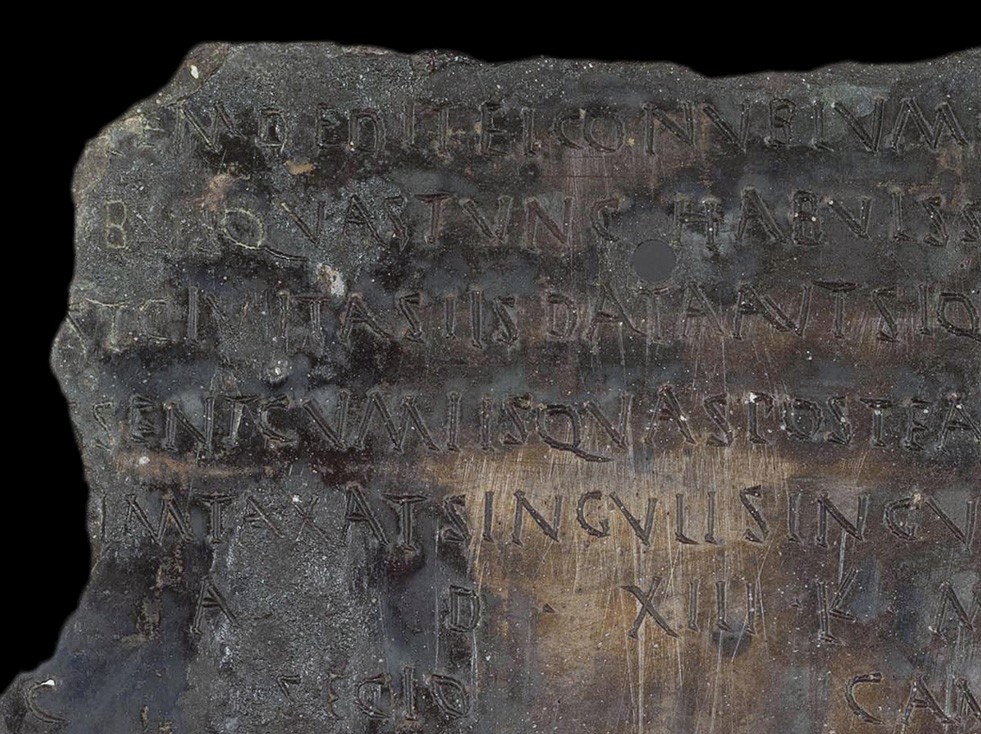 EM DEDIT ET CONVBIVM
BVS QVAS TVNC HABVISS
ST CIVITAS IIS DATA AVT SIQ
SENT CVM IIS QVAS POSTEA
VMTAXAT SINGVLI SINGV
A D · XIII · K ·
C SECIO CAM